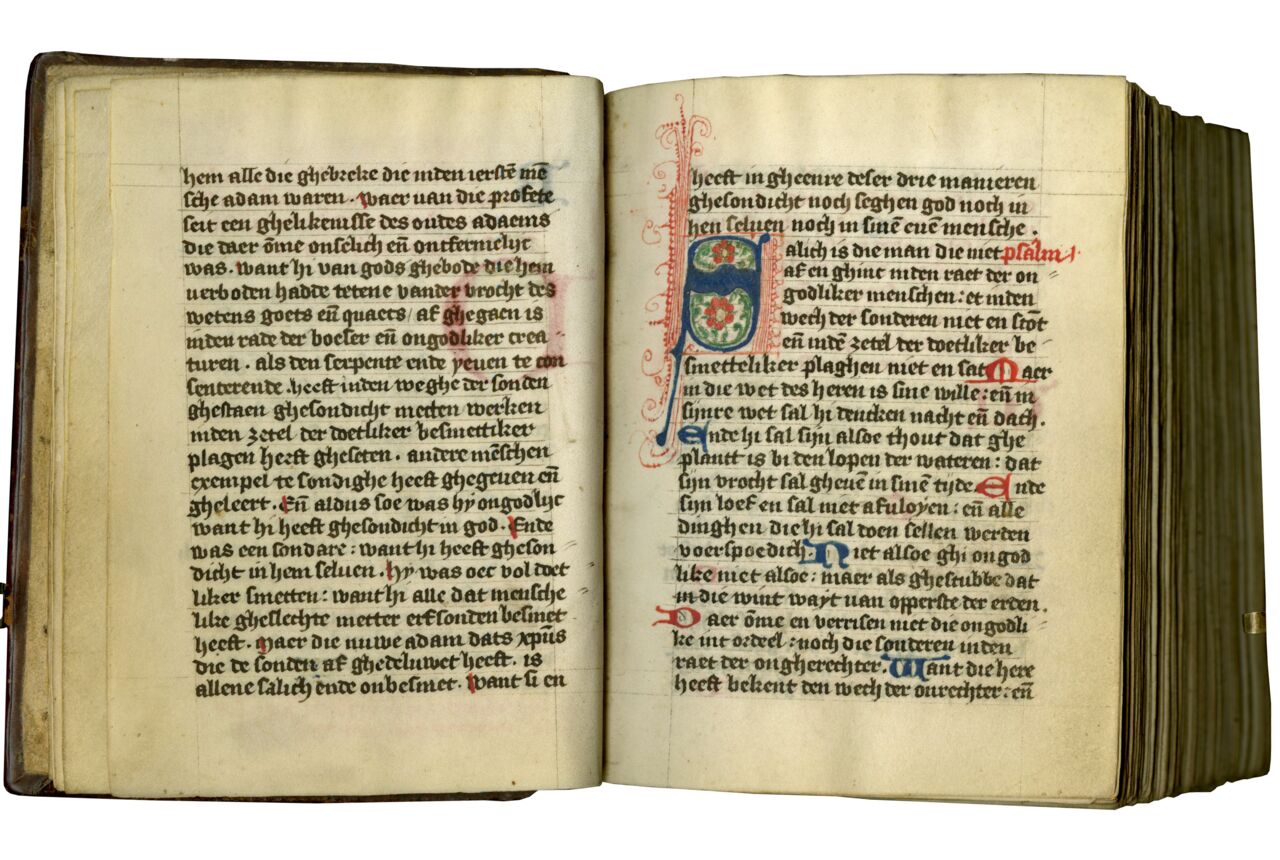 hem alle die ghebreke die inden ierstē mē
sche adam waren . waer van die profete
seit een ghelikenisse des oudes adaems
die daer ōme onselich eñ ontfermelijc
was . want hi van gods ghebode die hem
verboden hadde tetene vander vrocht des
wetens goets eñ quaets / af ghegaen is
inden rade der boeser eñ ongodliker crea
turen . als den serpente ende yeven te con
senterende . heeft inden weghe der sonden
ghestaen ghesondicht metten werken
inden zetel der doetliker besmettiker
plagen heeft gheseten . andere mēschen
exempel te sondighe heeft ghegeuen eñ
gheleert . Eñ aldus soe was hy ongodlijc
want hi heeft ghesondicht in god . Ende
was een sondare : want hi heeft gheson
dicht in hem seluen . Hy was oec vol doet
liker smetten : want hi alle dat mensche
like gheslechte metter erfsonden besmet
heeft . Maer die nuwe adam dats xp̄us
die de sonden af ghedeluwet heeft . is
allene salich ende onbesmet . Want si en
heeft in gheenre deser drie manieren
ghesondicht noch seghen god noch in
hen seluen noch in sinē euē mensche .
Salich is die man die niet psalm 1
af en ghinc inden raet der on
godliker menschen : et inden
wech der sonderen niet en stōt
eñ indē zetel der doetliker be
smetteliker plaghen niet en sat Maer
in die wet des heren is sine wille : eñ in
sijnre wet sal hi dencken nacht eñ dach .
Ende hi sal sijn alsoe thout dat ghe
plantt is bi den lopen der wateren : dat
sijn vrocht sal gheuē in sinē tijde . Ende
sijn loef en sal niet afuloyen : eñ alle
dinghen die hi sal doen sellen werden
voerspoedich . Niet alsoe ghi ongod
like niet alsoe : maer als ghestubbe dat
in die wint wayt van opperste der erden .
Daer ōme en verrisen niet die ongodli
ke int ordeel : noch die sonderen inden
raet der ongherechter . Want die here
heeft bekent den wech der ourechter : eñ